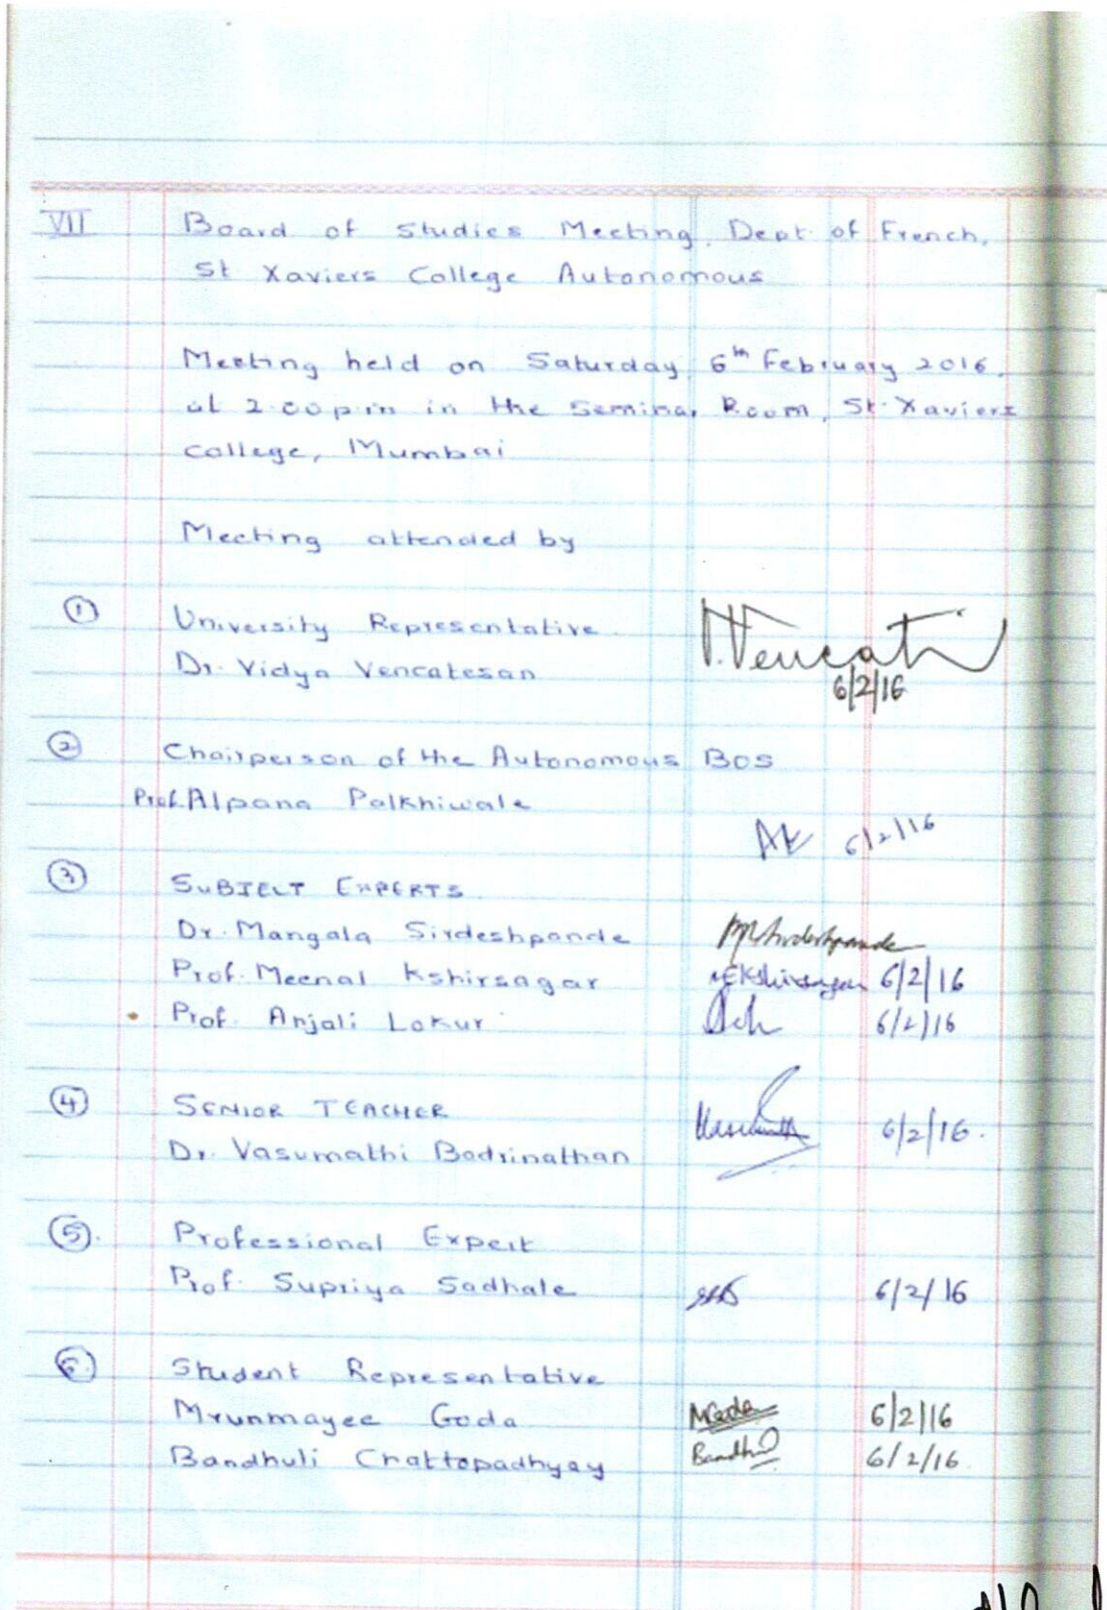 VII Board of Studies Meeting, Dept of French,
St Xaviers College Autonomous
Meeting held on Saturday, 6th February 2016,
at 2.00pm in the Seminar Room, St. Xaviers
College, Mumbai
Meeting attended by
① University Representative.
Dr. Vidya Vencatesan V. Vencat
6/2/16
② Chairperson of the Autonomous BOS
Prof. Alpana Palkhiwale
6/2/16
③ SUBJECT EXPERTS
Dr. Mangala Sirdeshpande MSirdeshpande
Prof. Meenal Kshirsagar MEKshirsagar 6/2/16
Prof. Anjali Lokur 6/2/16
④ SENIOR TEACHER
Dr. Vasumathi Badrinathan 6/2/16.
⑤. Professional Expert
Prof. Supriya Sadhale 6/2/16
⑥ Student Representative
Mrunmayee Goda MGoda 6/2/16
Bandhuli Chattopadhyay Bandhu 6/2/16.